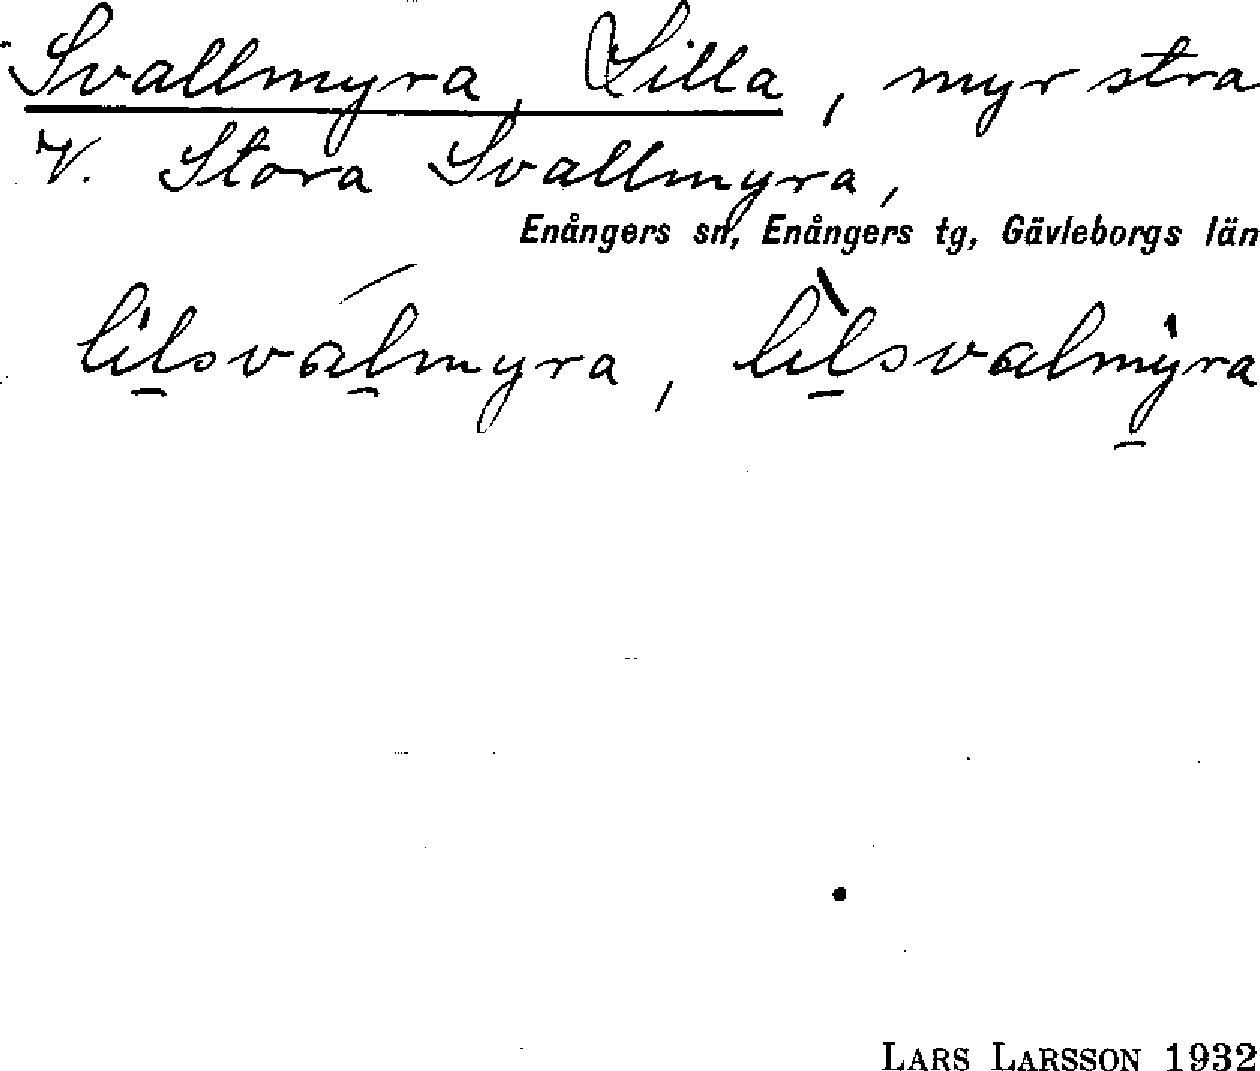 Svallmyra, Lilla, myr stra
V. Stora Svallmyra,
Enångers sn, Enångers tg, Gävleborgs län
lilsválmyra, lìlsvalmyra
LARS LARSSON 1932